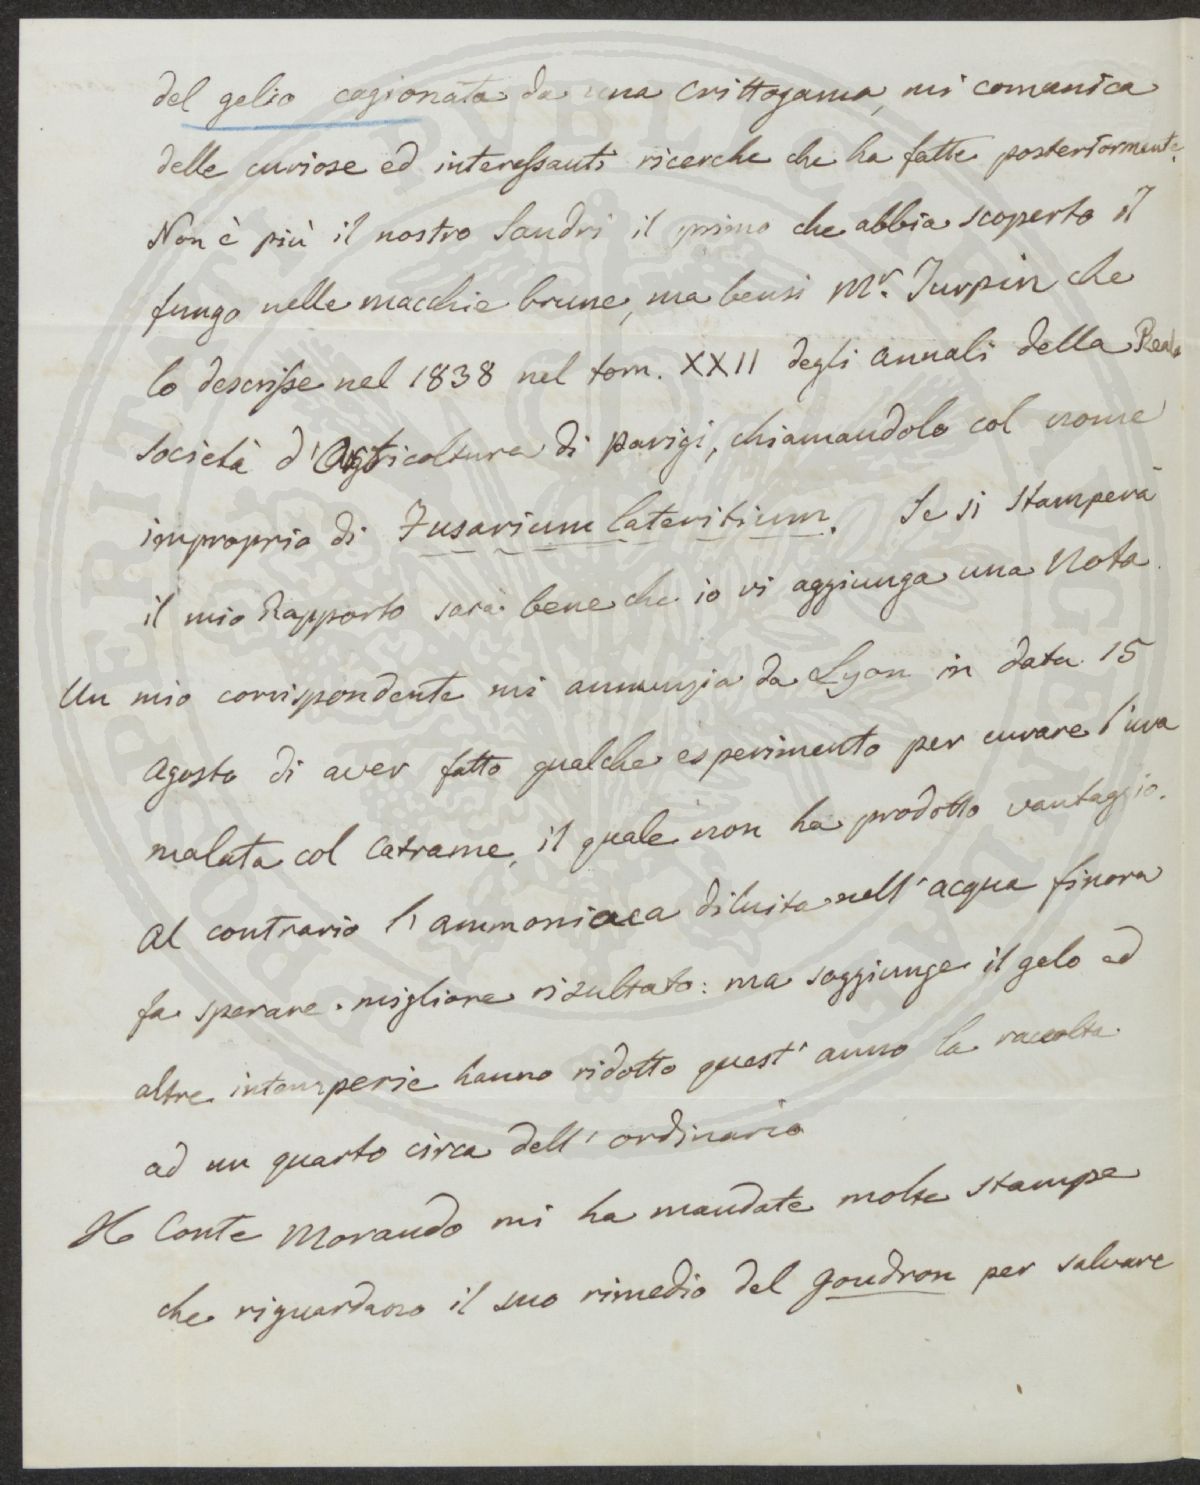 del gelso cagionata da una crittogama, mi comunica
delle curiose ed interessanti ricerche che ha fatte posteriormente.
Non è più il nostro Sandri il primo che abbia scoperto il
fungo nelle macchie brune, ma bensì Mr. Turpin che
lo descrisse nel 1838 nel tom. XXII degli annali della Reale
Società d'Agricoltura di Parigi, chiamandolo col nome
improprio di Fusarium lateritium. Se si stamperà
il mio Rapporto sarà bene che io vi aggiunga una Nota.
Un mio corrispondente mi annunzia da Lyon in data 15
Agosto di aver fatto qualche esperimento per curare l'uva
malata col Catrame, il quale non ha prodotto vantaggio.
Al contrario l'ammoniaca diluita nell'acqua finora
fa sperare migliore risultato: ma soggiunge il gelo ed
altre intemperie hanno ridotto quest'anno la raccolta
ad un quarto circa dell'ordinario
Il Conte Morando mi ha mandate molte stampe
che riguardano il suo rimedio del goudron per salvare
PUBLICAE
PROSPERITATI